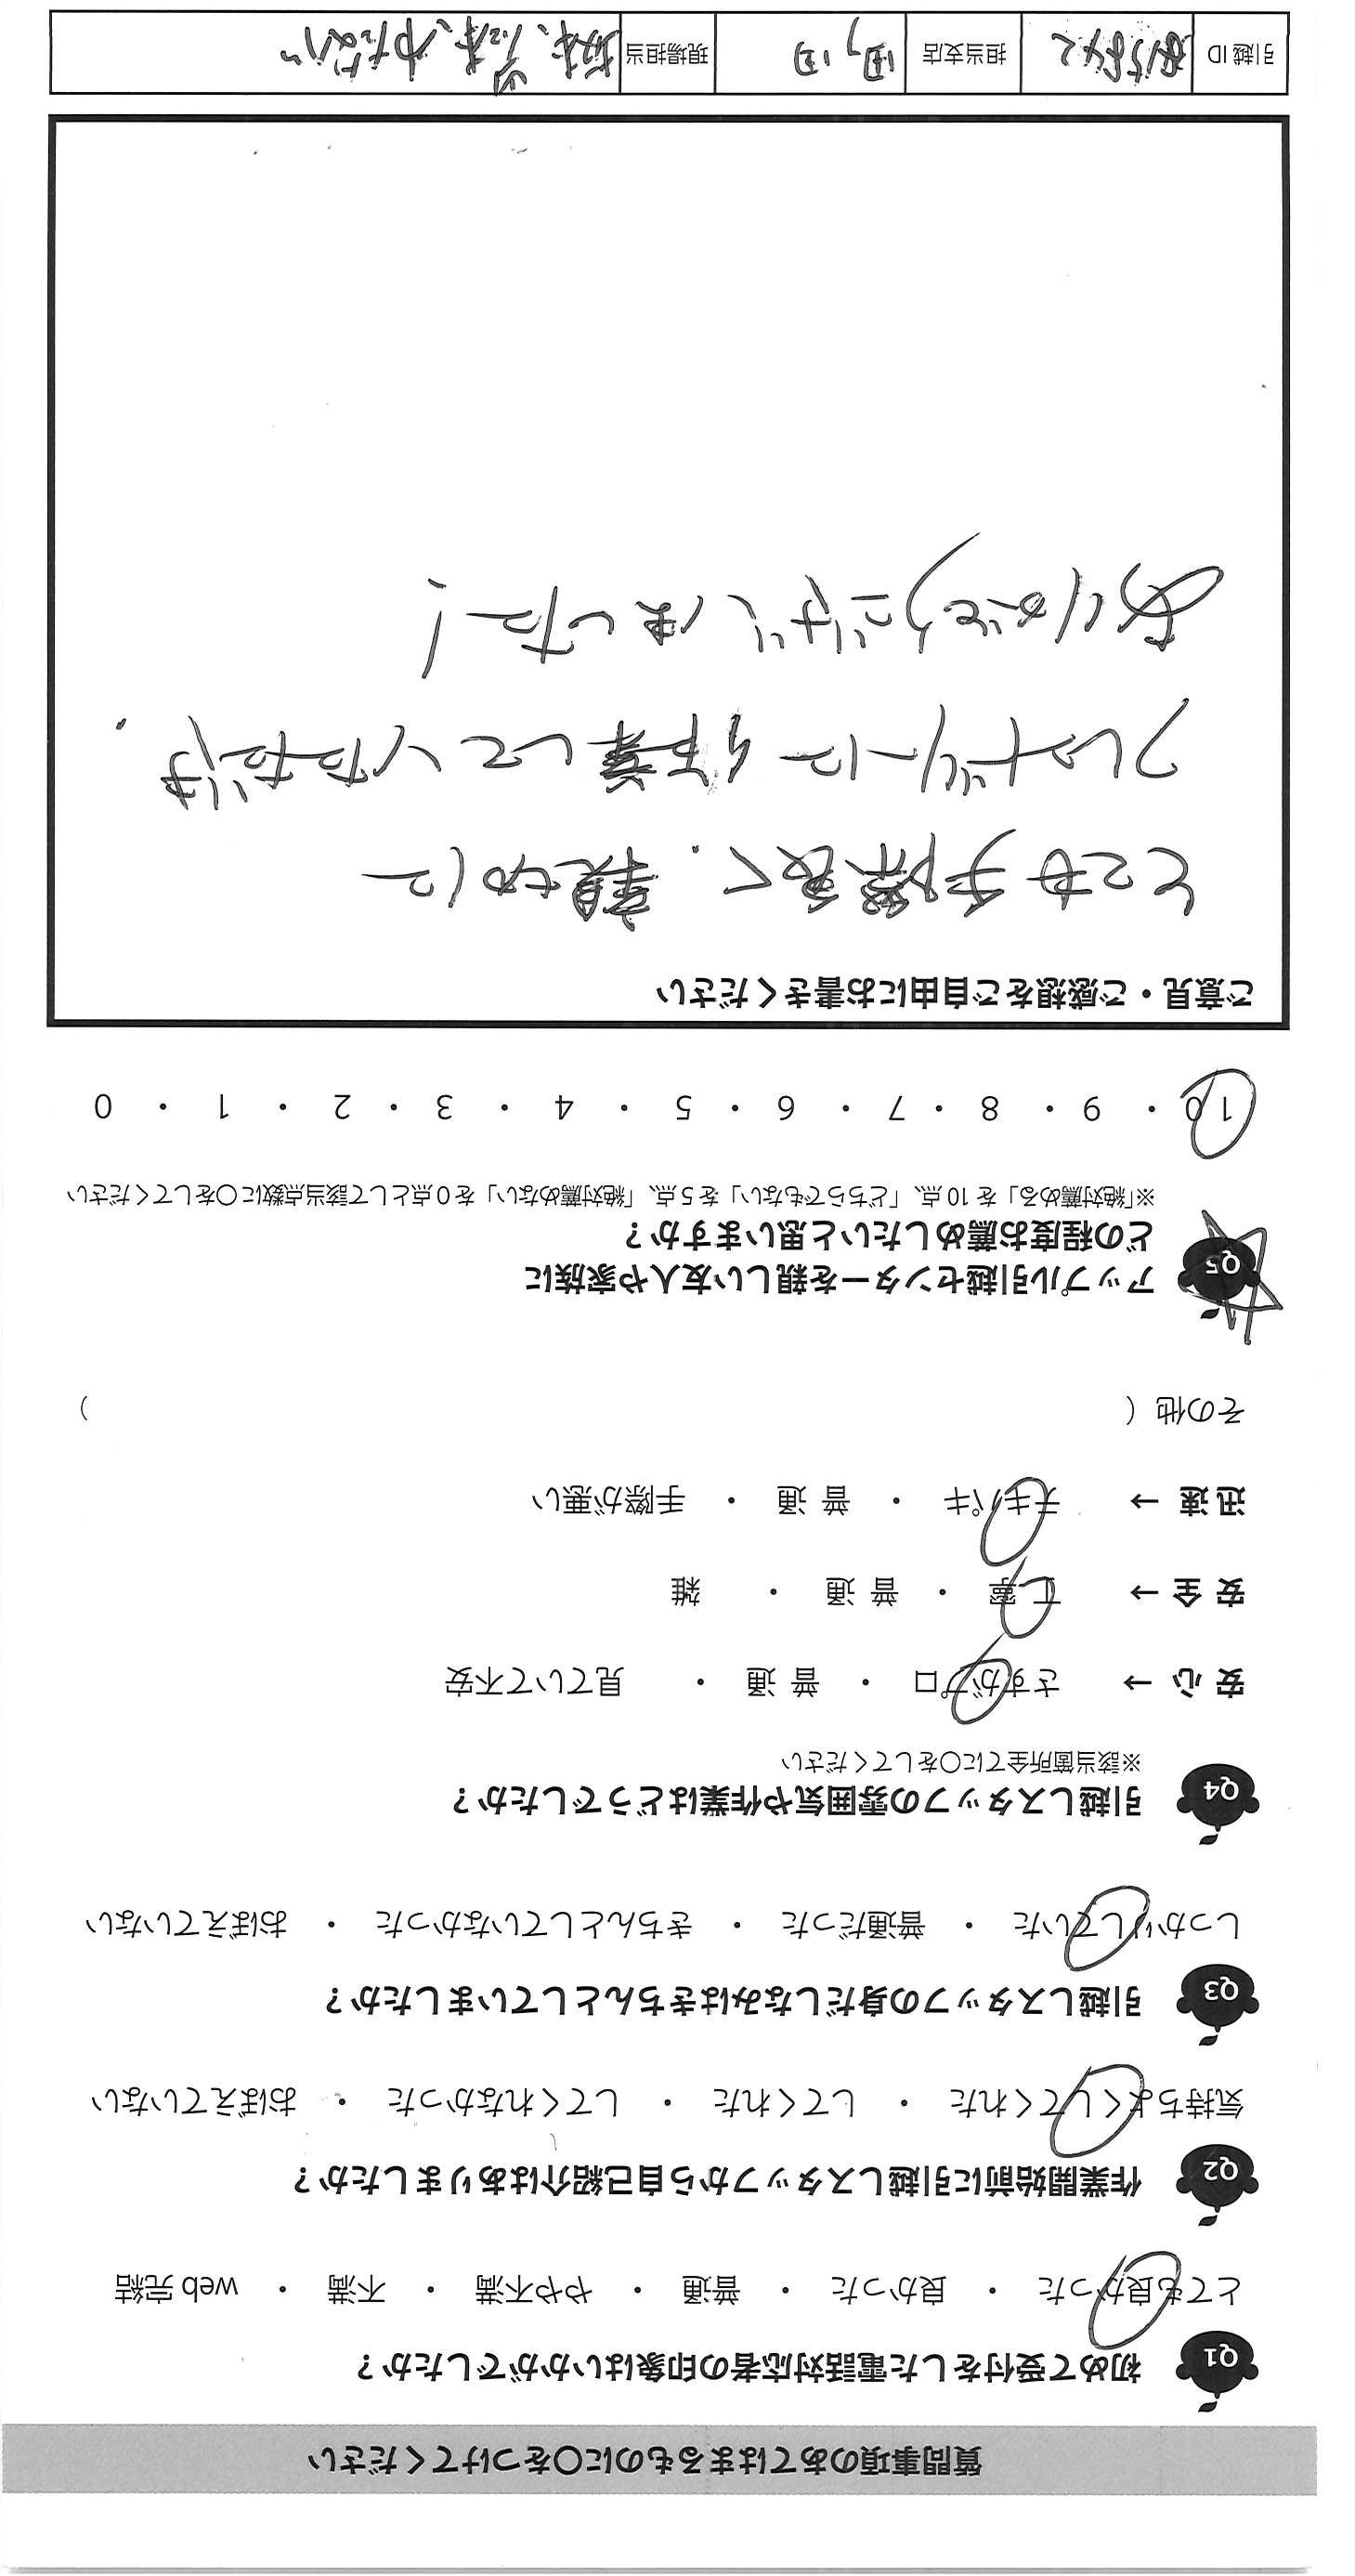 質問事項のあてはまるものに〇をつけてください
Q1 初めて受付をした電話対応者の印象はいかがでしたか？
とても良かった ・ 良かった ・ 普通 ・ やや不満 ・ 不満 ・ web 完結
Q2 作業開始前に引越しスタッフから自己紹介はありましたか？
気持ちよくしてくれた ・ してくれた ・ してくれなかった ・ おぼえていない
Q3 引越しスタッフの身だしなみはきちんとしていましたか？
しっかりしていた ・ 普通だった ・ きちんとしていなかった ・ おぼえていない
Q4 引越しスタッフの雰囲気や作業はどうでしたか？
※該当箇所全てに〇をしてください
安 心 → さすがプロ ・ 普 通 ・ 見ていて不安
安 全 → 丁 寧 ・ 普 通 ・ 雑
迅 速 → テキパキ ・ 普 通 ・ 手際が悪い
その他（ ）
Q5 アップル引越センターを親しい友人や家族に
どの程度お薦めしたいと思いますか？
※「絶対薦める」を 10 点、「どちらでもない」を 5 点、「絶対薦めない」を 0 点として該当点数に〇をしてください
10 ・ 9 ・ 8 ・ 7 ・ 6 ・ 5 ・ 4 ・ 3 ・ 2 ・ 1 ・ 0
ご意見・ご感想をご自由にお書きください
とても手際良く、親切に
フレンドリーに作業していただけ
ありがとうございました！
引越 ID 担当支店 現場担当